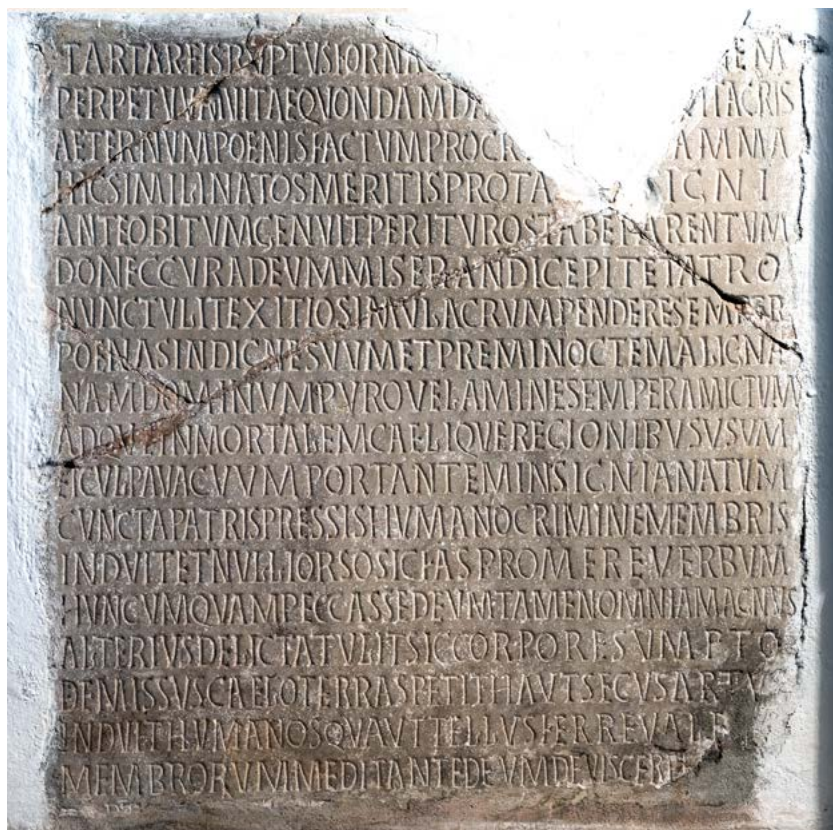 TARTAREISRVPTVSFORN EM
PERPETVVMVITAEQVONDAMDA VITACRIS
AETERNVMPOENISFACTVMPROCR AMMA
HICSIMILINATOSMERITISPROTA IGNI
ANTEOBITVMGENVITPERITVROSTABEPARENTVM
DONECCVRADEVMMISERANDICEPITETATRO
NVNCTVLITEXITIOSIMVLACRVMPENDERESEMPER
POENASINDIGNESVVMETPREMINOCTEMALIGNA
NAMDOMINVMPVROVELAMINESEMPERAMICTVM
ADQVEINMORTALEMCAELIQVEREGIONIBVSVSVM
ETCVLPAVACVVMPORTANTEMINSIGNIANATVM
CVNCTAPATRISPRESSISHVMANOCRIMINEMEMBRIS
INDVITETNVLLIORSOSICFASPROMEREVERBVM
HVNCVMQVAMPECCASSEDEVMETAMENOMNIAMAGNVS
ALTERIVSDELICTATVLITSICCORPORESVMPTO
DEMISSVSCAELOTERRASPETITHAVTSECVSARTVS
INDVITHVMANOSQVAVITTELLVSFERREVALE
MEMBRORVMMEDITANTEDEVMDEVISCERE